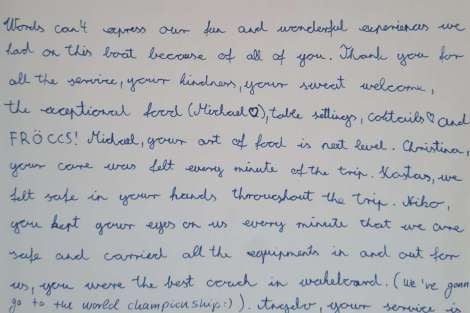 Words can't express our fun and wonderful experiences we
had on this boat because of all of you. Thank you for
all the service, your kindness, your sweat welcome,
the exceptional food (Michael♡), table settings, cocktails♡ and
FRÖCCS! Michael, your art of food is next level. Christina,
your care was felt every minute of the trip. Kostas, we
felt safe in your hands throughout the trip. Niko,
you kept your eyes on us every minute that we are
safe and carried all the equipments in and out for
us, you were the best coach in wakeboard. (We've gonna
go to the world championship:) ). Angelo, your service is